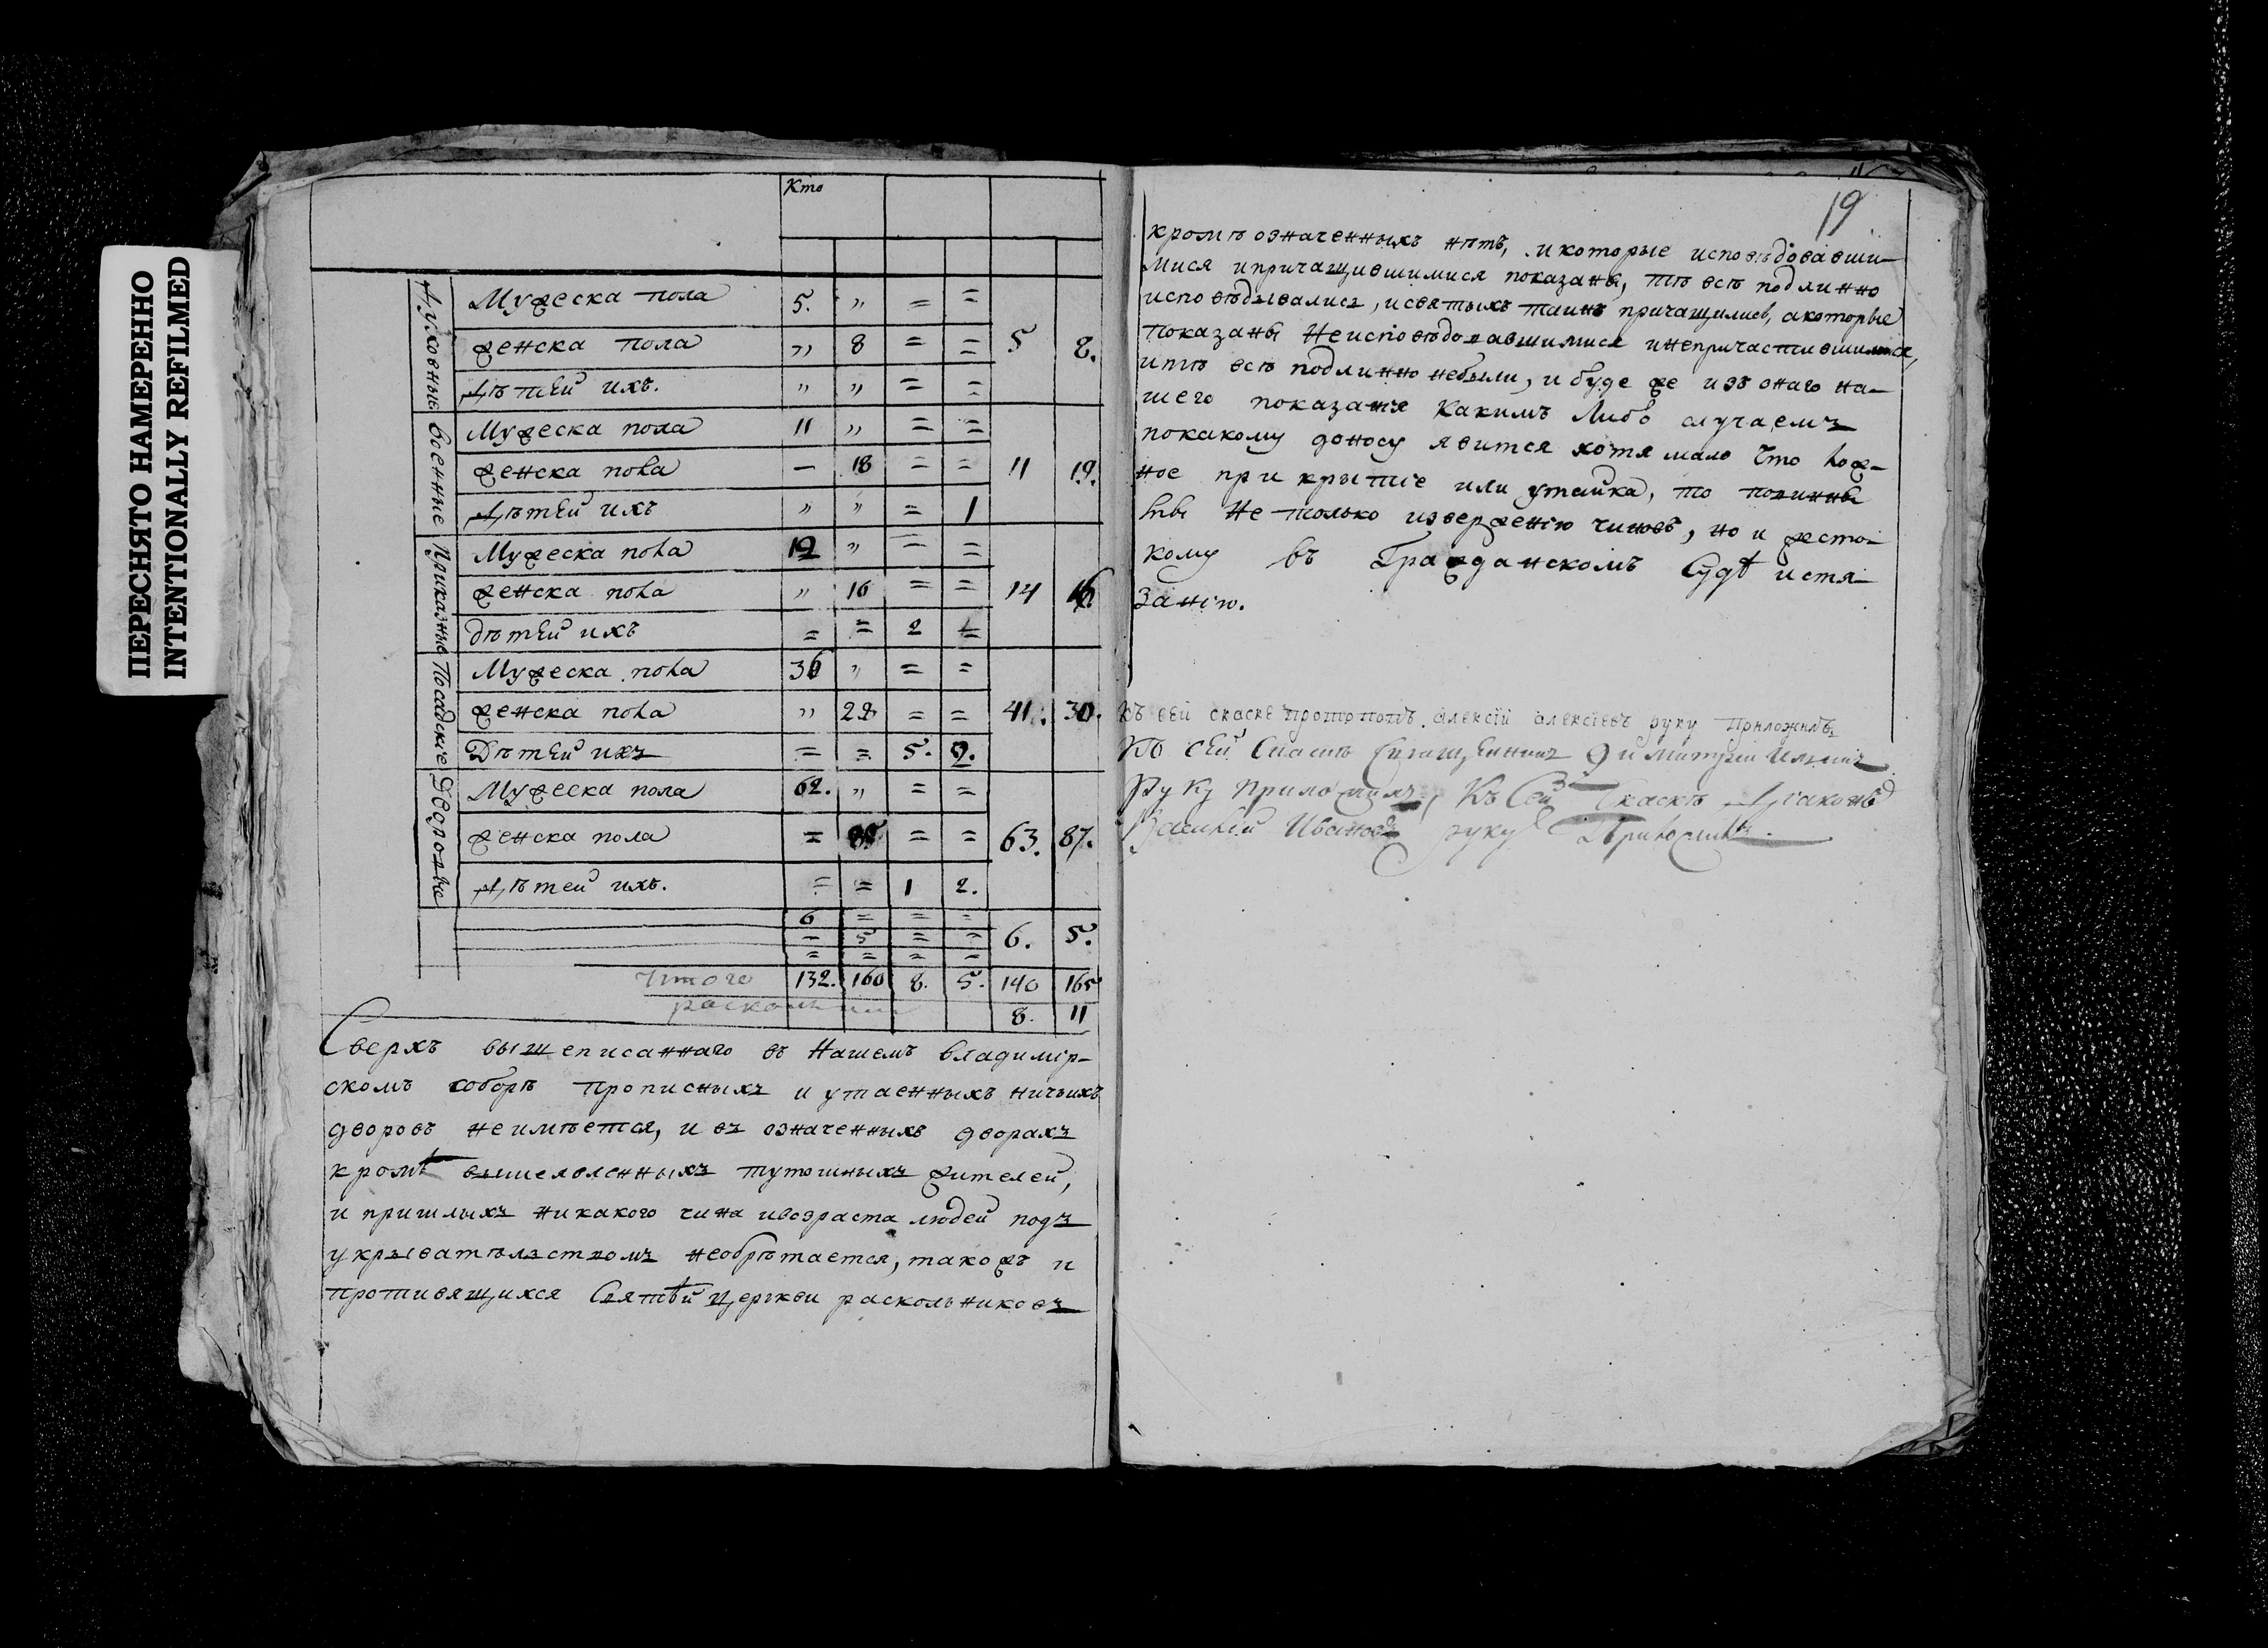 ПЕРЕСНЯТО НАМЕРЕННО
INTENTIONALLY REFILMED
Кто
Духовные
Мужеска пола 5. „ = = 5 8.
женска пола „ 8 = =
Дѣтей ихъ. „ „ = =
Военные
Мужеска пола 11 „ = = 11 19.
женска пола — 18 = =
Дѣтей ихъ „ „ = 1
Приказные
Мужеска пола 12 „ = = 14 16
женска пола „ 16 = =
дѣтей ихъ = = 2 =
Посадскіе
Мужеска пола 36 „ = = 41. 30.
женска пола „ 28 = =
Дѣтей ихъ = = 5. 2.
Дворовые
Мужеска пола 62. „ = = 63. 87.
женска пола = 85 = =
Дѣтей ихъ. = = 1 2.
6 = = = 6. 5.
— 5 = =
= = = =
Итого 132. 160 8. 5. 140 165
8. 11
Сверхъ вышеписаннаго въ нашемъ владимір-
скомъ соборѣ прописныхъ и утаенныхъ ничьихъ
дворовъ неимѣется, и въ означенныхъ дворахъ
кромѣ вышеявленныхъ тутошныхъ жителей,
и пришлыхъ никакого чина ивозраста людей подъ
укрывателъствомъ необрѣтается, такожъ и
противящихся Святѣй церькви раскольниковъ
19
кромѣ означенныхъ нѣтъ, икоторые исповѣдовавши-
мися ипричащившимися показаны, тѣ всѣ подлинно
исповѣдывались, исвятыхъ таинъ причащились, акоторые
показаны неисповѣдовавшимися инепричастившимися,
итѣ всѣ подлинно небыли, и буде же изъ онаго на-
шего показанія какимъ либо случаемъ
покакому доносу явится хотя мало что лож-
ное прикрытіе или утайка, то повинны
мы не только изверженію чиновъ, но и жесто-
кому въ Гражданскомъ Судѣ истя-
занію.
къ сей скаске протопопъ алексій алексіевъ руку приложилъ
Къ сей Скаскѣ Священникъ Димитрій Ильинъ
Руку приложилъ, Къ Сей Скаскѣ Діаконъ
Василій Ивановъ руку Приложилъ.